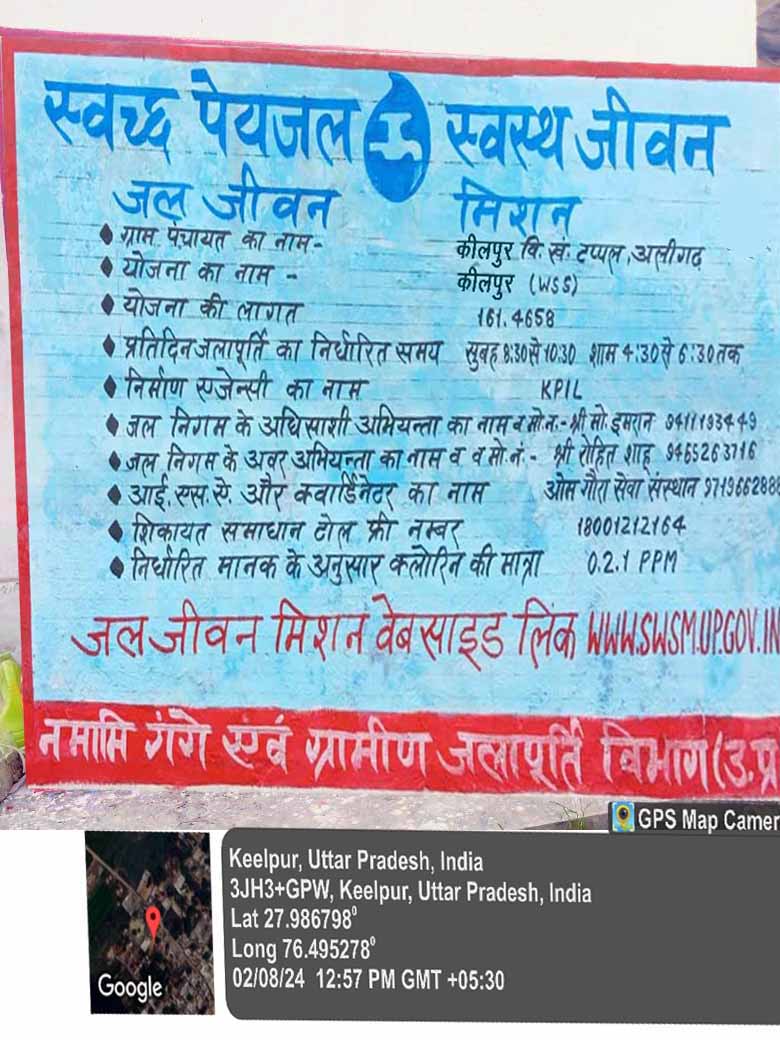 स्वच्छ पेयजल स्वस्थ जीवन
जल जीवन मिशन
ग्राम पंचायत का नाम- कीलपुर वि. खं. टप्पल, अलीगढ़
योजना का नाम - कीलपुर (WSS)
योजना की लागत 161.4658
प्रतिदिन जलापूर्ति का निर्धारित समय सुबह 8:30 से 10:30 शाम 4:30 से 6:30 तक
निर्माण एजेन्सी का नाम KPIL
जल निगम के अधिसाशी अभियन्ता का नाम व मो.न.- श्री मो. इमरान 9411193449
जल निगम के अवर अभियन्ता का नाम व व मो.नं.- श्री रोहित शाहू 9465263716
आई. एस. ऐ. और क्वार्डिनेटर का नाम ओम गौरा सेवा संस्थान 9719662888
शिकायत समाधान टोल फ्री नम्बर 18001212164
निर्धारित मानक के अनुसार कलोरिन की मात्रा 0.2.1 PPM
जल जीवन मिशन वेबसाइड लिंक WWW.SWSM.UP.GOV.IN
नमामि गंगे एवं ग्रामीण जलापूर्ति विभाग (उ.प्र
GPS Map Camer
Keelpur, Uttar Pradesh, India
3JH3+GPW, Keelpur, Uttar Pradesh, India
Lat 27.986798⁰
Long 76.495278⁰
02/08/24 12:57 PM GMT +05:30
Google